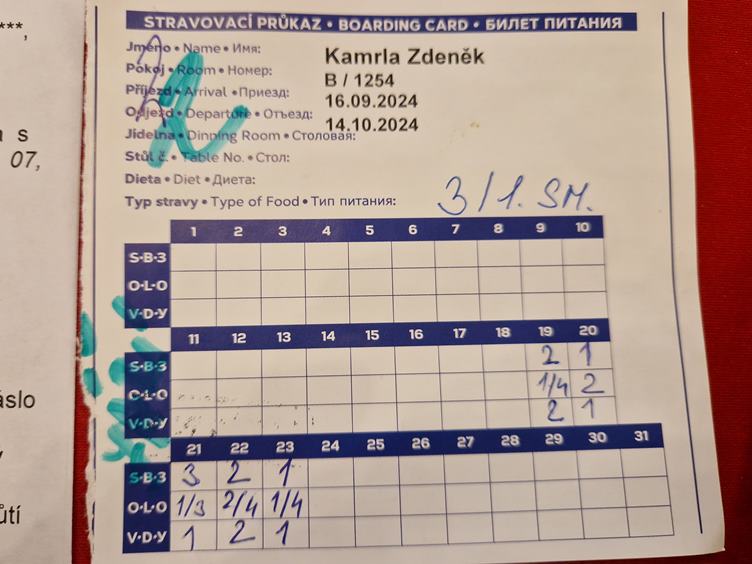 ***,
STRAVOVACÍ PRŮKAZ • BOARDING CARD • БИЛЕТ ПИТАНИЯ
Jméno • Name • Имя: Kamrla Zdeněk
Pokoj • Room • Номер: B / 1254
Příjezd • Arrival • Приезд: 16.09.2024
Odjezd • Departure • Отъезд: 14.10.2024
a s
Jídelna • Dinning Room • Столовая:
07,
Stůl č. • Table No. • Стол:
Dieta • Diet • Диета:
Typ stravy • Type of Food • Тип питания: 3/1. SM.
1 2 3 4 5 6 7 8 9 10
S•B•З
O•L•O
V•D•У
11 12 13 14 15 16 17 18 19 20
S•B•З 2 1
O•L•O 1/4 2
V•D•У 2 1
21 22 23 24 25 26 27 28 29 30 31
S•B•З 3 2 1
O•L•O 1/3 2/4 1/4
V•D•У 1 2 1